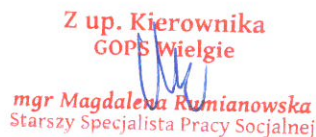 Z up. Kierownika
GOPS Wielgie
mgr Magdalena Rumianowska
Starszy Specjalista Pracy Socjalnej